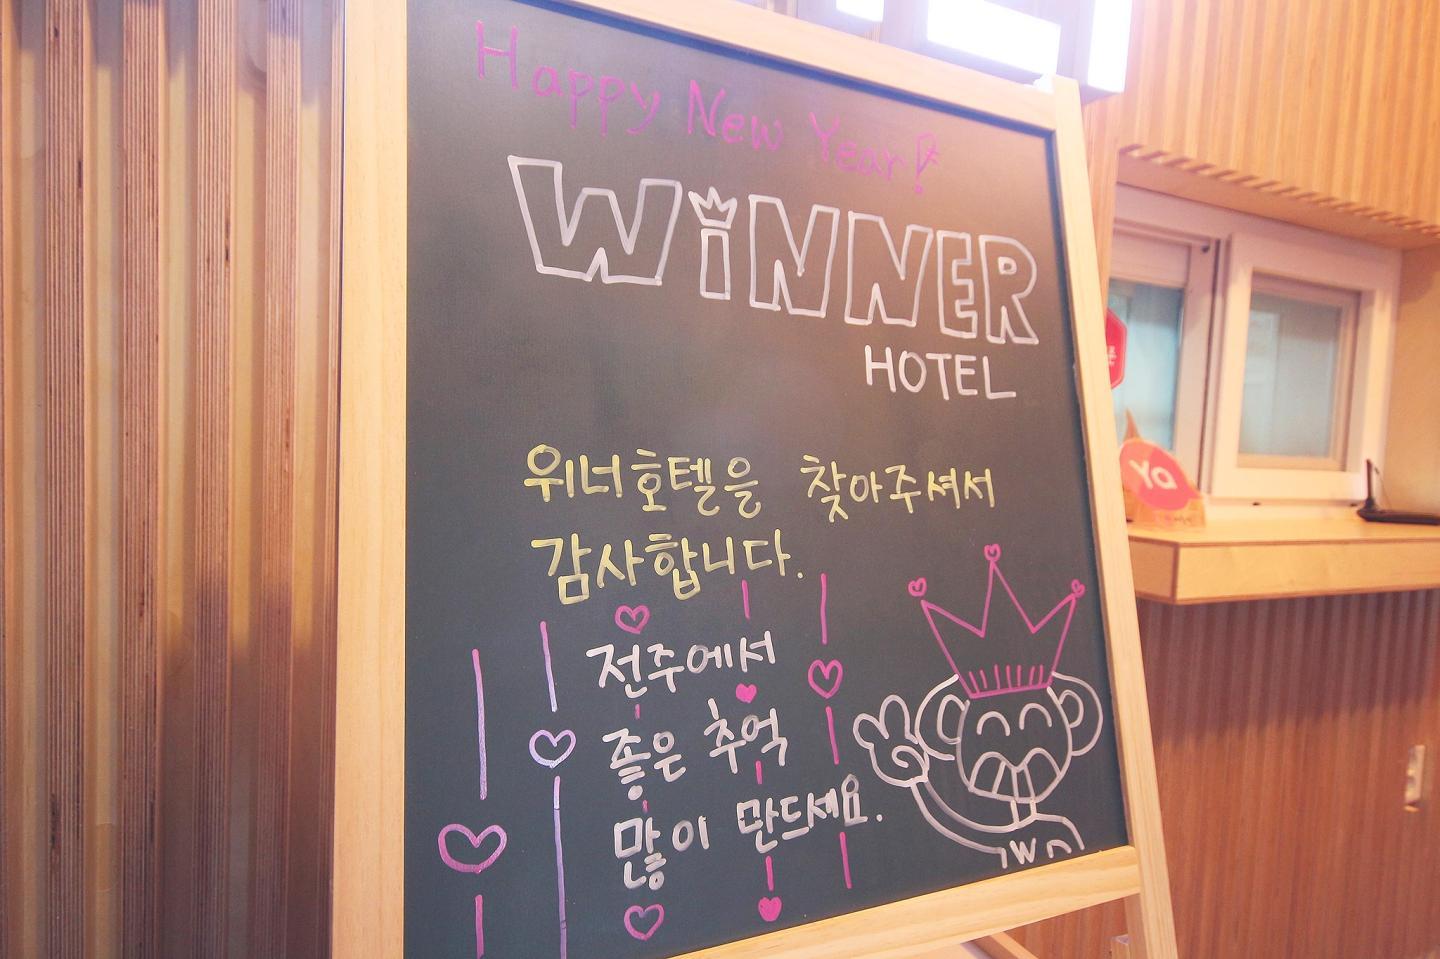 Happy New Year!
WiNNER
HOTEL
위너호텔을 찾아주셔서
감사합니다.
전주에서
좋은 추억
많이 만드세요.
W
Ya